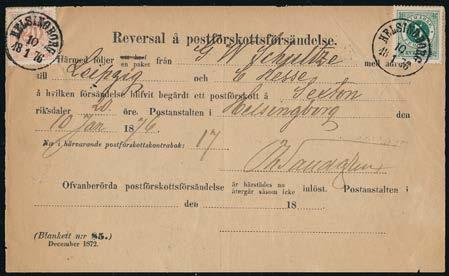 HELSINGBORG
10
1 76
HELSINGBORG
10
1
Reversal å postförskottsförsändelse.
Härmed följer ett bref en paket från G W Schultze med adress
till Leipzig och C Hesse
å hvilken försändelse blifvit begärdt ett postförskott å Sexton
riksdaler 20 öre. Postanstalten i Helsingborg den
10 Jan 1876
N:o i härvarande postförskottskontrabok: 17
Ofvanberörda postförskottsförsändelse är härstädes nu återgår såsom icke inlöst. Postanstalten i
den 18
(Blankett n:r 85.)
December 1872.